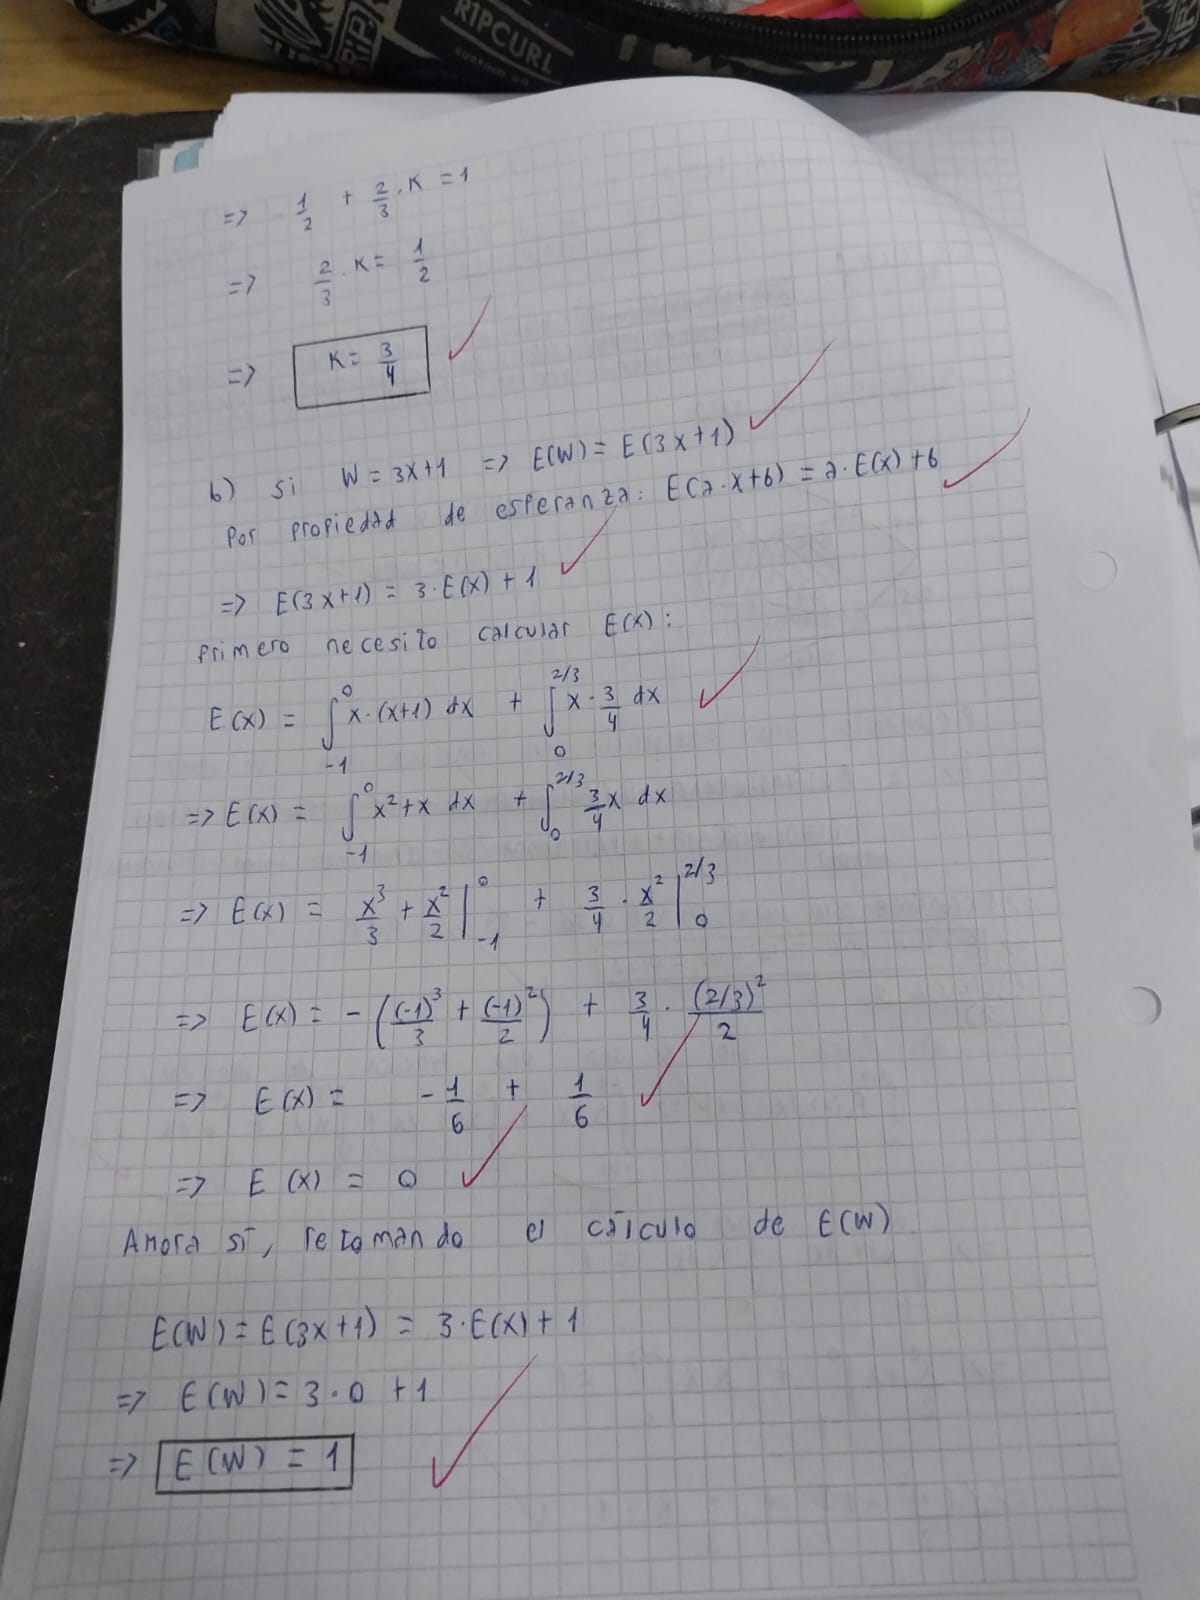 RIPCURL
=> 1/2 + 2/3 . K = 1
=> 2/3 . K = 1/2
=> K = 3/4
b) Si W = 3x+1 => E(W) = E(3x+1)
Por propiedad de esperanza: E(a.x+b) = a.E(x)+b
=> E(3x+1) = 3.E(x) + 1
primero necesito calcular E(x):
E(x) = ∫_{-1}^{0} x.(x+1) dx + ∫_{0}^{2/3} x.3/4 dx
=> E(x) = ∫_{-1}^{0} x²+x dx + ∫_{0}^{2/3} 3/4 x dx
=> E(x) = x³/3 + x²/2 |_{-1}^{0} + 3/4 . x²/2 |_{0}^{2/3}
=> E(x) = -((-1)³/3 + (-1)²/2) + 3/4 . (2/3)²/2
=> E(x) = -1/6 + 1/6
=> E(x) = 0
Ahora sí, retomando el cálculo de E(W)
E(W) = E(3x+1) = 3.E(x) + 1
=> E(W) = 3.0 + 1
=> E(W) = 1